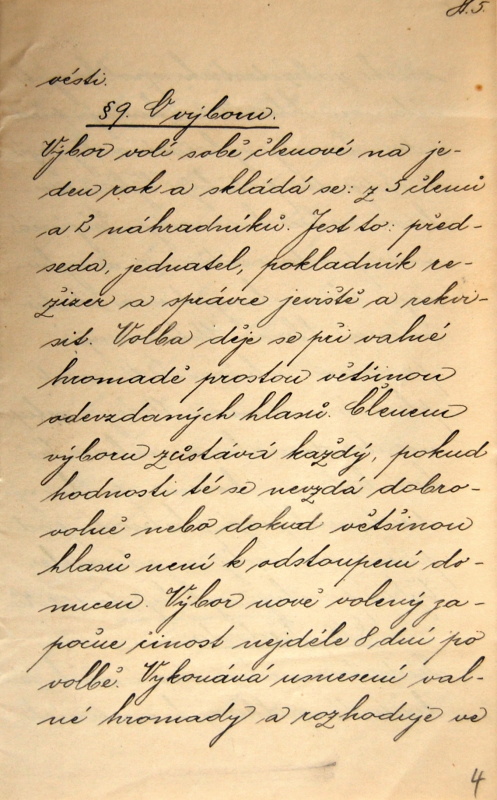 A.5.
vésti.
§ 9. O výboru.
Výbor volí sobě členové na je-
den rok a skládá se: z 5 členů
a 2 náhradníků. Jest to: před-
seda, jednatel, pokladník re-
žizer a správce jeviště a rekvi-
sit. Volba děje se při valné
hromadě prostou většinou
odevzdaných hlasů. Členem
výboru zůstává každý, pokud
hodnosti té se nevzdá dobro-
volně nebo dokud většinou
hlasů není k odstoupení do-
nucen. Výbor nově volený za-
počne činost nejdéle 8 dní po
volbě. Vykonává usnesení val-
né hromady a rozhoduje ve
4